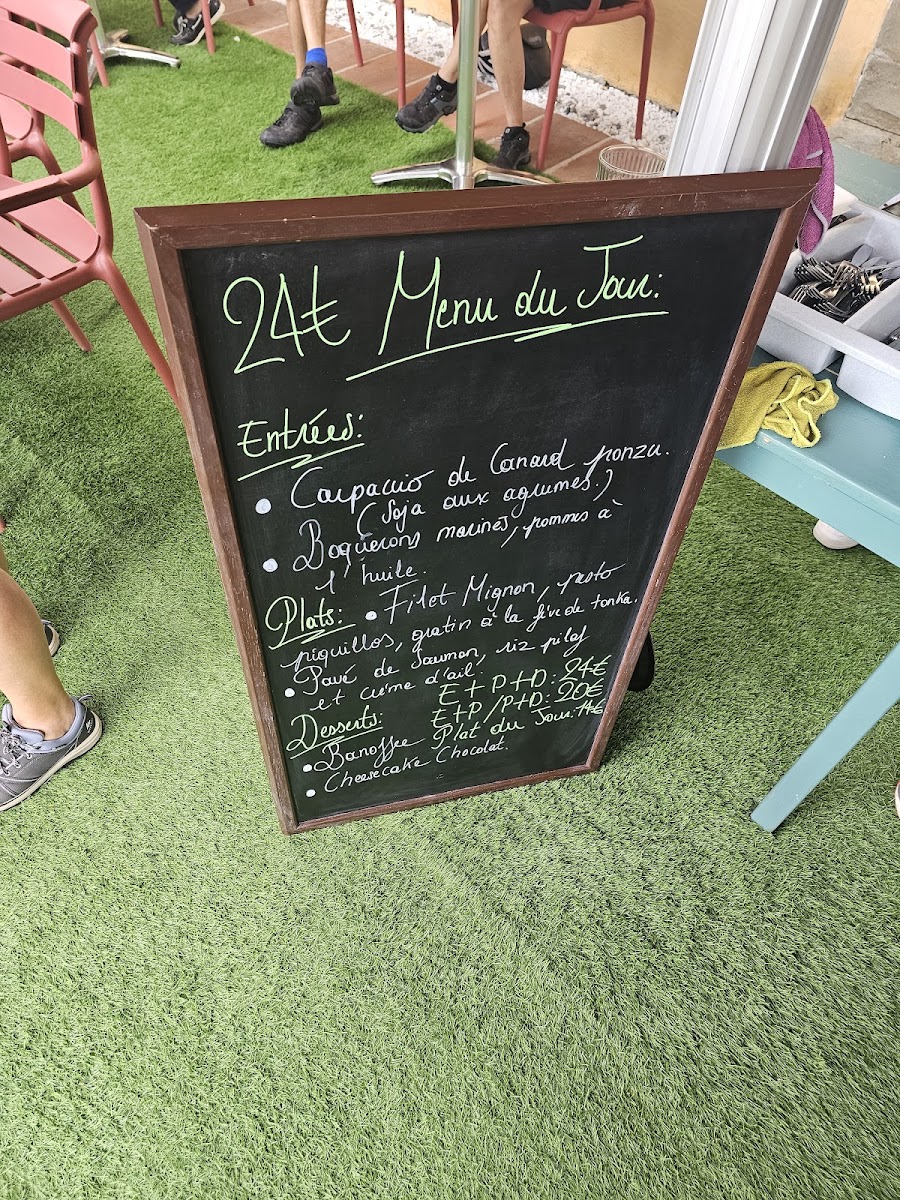 24€ Menu du Jour:
Entrées:
• Carpaccio de Canard ponzu.
(Soja aux agrumes.)
• Boquerons marinés, pommes à
l'huile.
Plats: • Filet Mignon, pesto
piquillos, gratin à la fève de tonka.
• Pavé de Saumon, riz pilaf
et crème d'ail,
E+P+D: 24€
Desserts: E+P/P+D: 20€
• Banoffee Plat du Jour: 14€
• Cheesecake Chocolat.